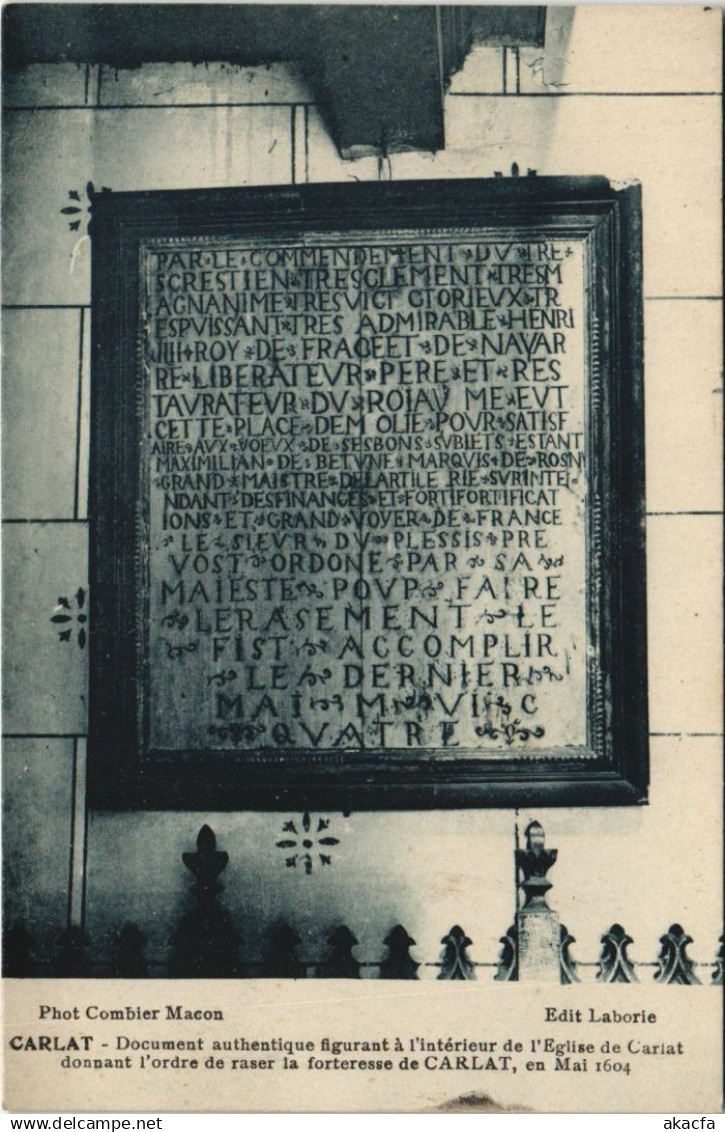 PAR·LE·COMMENDEMENT·DV·TRE·
SCRESTIEN·TRESCLEMENT·TRESM
AGNANIME·TRESVICTCTORIEVX·TR
ESPVISSANT·TRES ADMIRABLE·HENRI
IIII·ROY·DE·FRACEET·DE·NAVAR
RE·LIBERATEVR·PERE·ET·RES
TAVRATEVR·DV·ROIAV ME·EVT
CETTE·PLACE·DEM OLIE·POVR·SATISF
AIRE·AVX·VOEVX·DE·SESBONS·SVBIETS·ESTANT
MAXIMILIAN·DE·BETVNE·MARQVIS·DE·ROSN
·GRAND·MAISTRE·DELARTILE RIE·SVRINTE·
NDANT·DESFINANCES·ET·FORTIFORTIFICAT
IONS·ET·GRAND·VOYER·DE·FRANCE
·LE·SIEVR·DV·PLESSIS·PRE
VOST·ORDONE·PAR·SA
MAIESTE·POVP·FAIRE
·LERASEMENT·LE
FIST·ACCOMPLIR
·LE·DERNIER
MAI·M·VI·C
·QVATRE·
Phot Combier Macon
Edit Laborie
CARLAT - Document authentique figurant à l'intérieur de l'Eglise de Carlat
donnant l'ordre de raser la forteresse de CARLAT, en Mai 1604
akacfa
akacfa